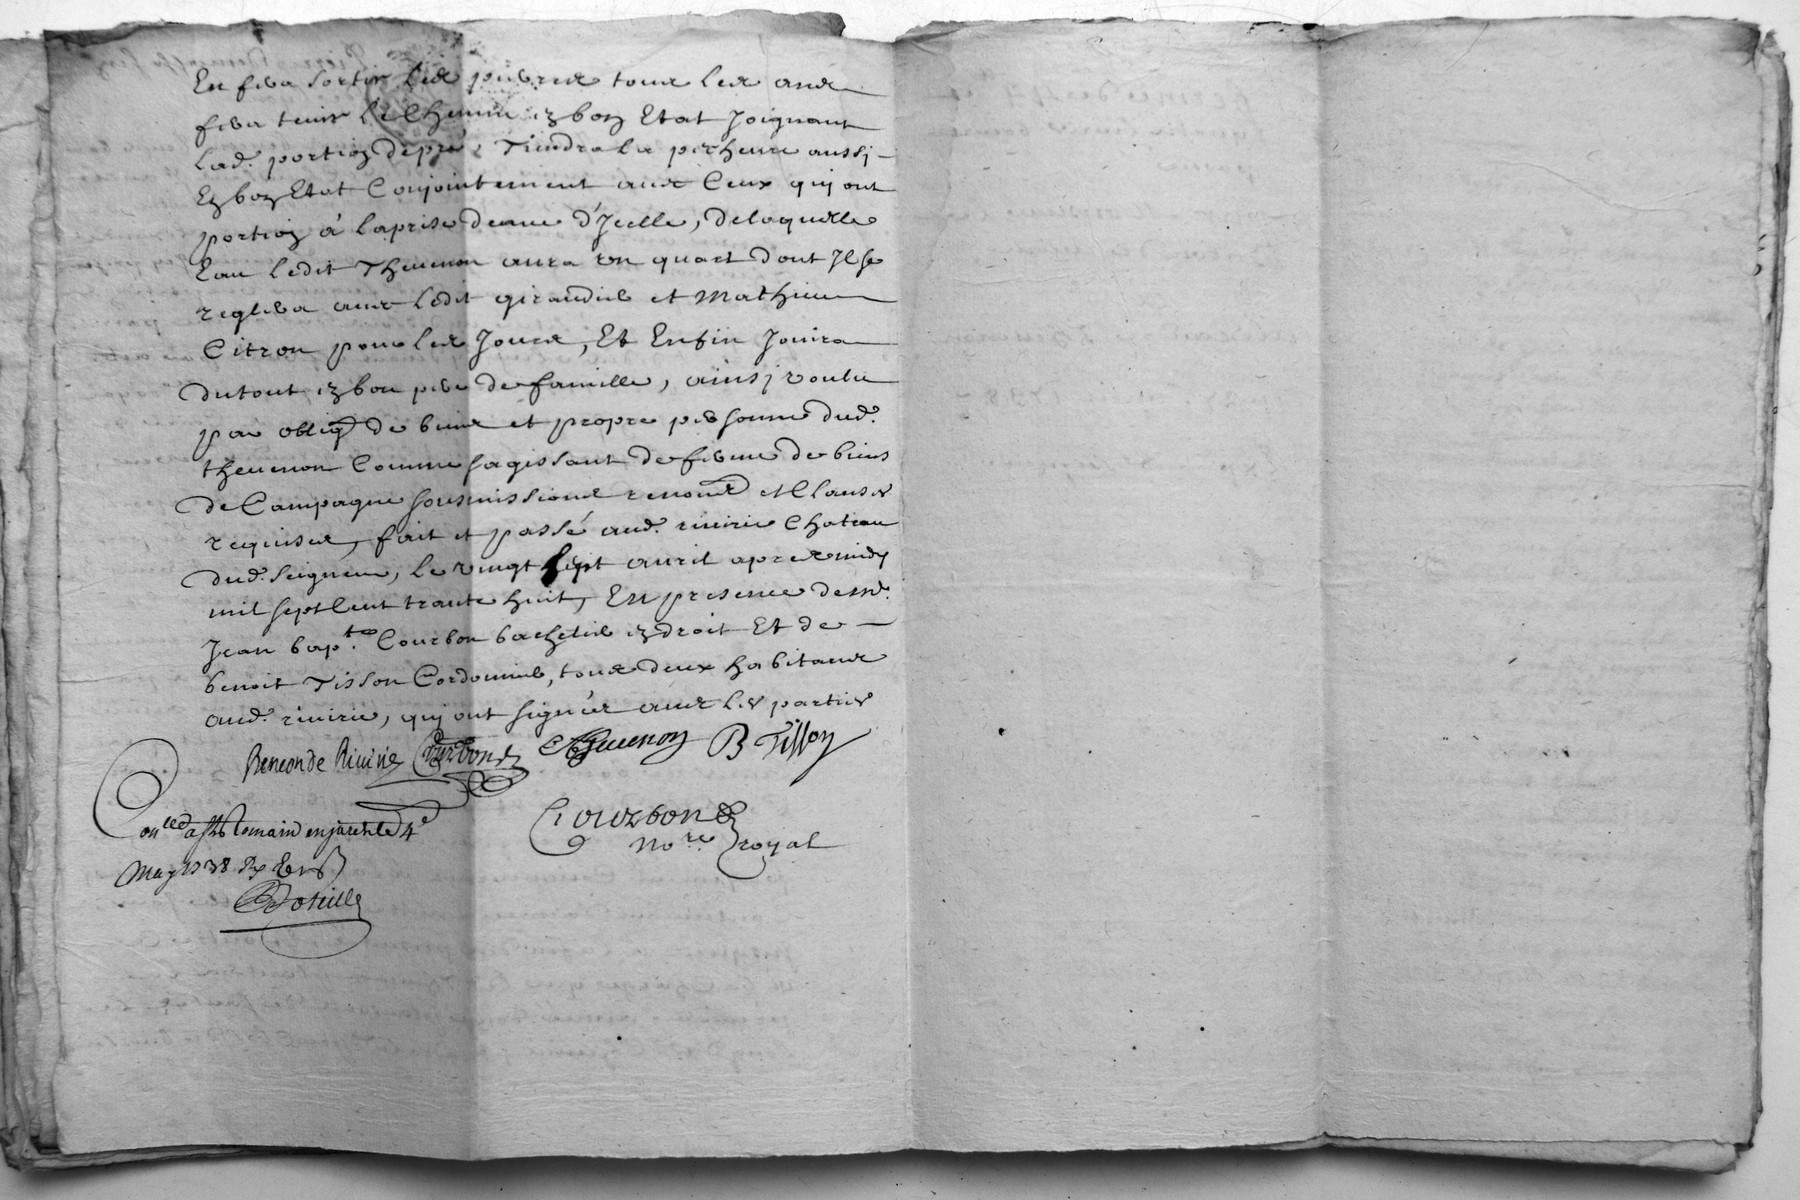 En fera sortir les pierres tous les ans
fera tenir le Chemin en bon Etat Joignant
lad. portion de pré, Tiendra la pecherie aussi
En bon Etat Conjointement avec Ceux qui ont
portion à la prise deaue d'Jcelle, de laquelle
Eau ledit Thevenon aura un quart dont Jl se
reglera avec ledit giraudier et Mathieu
Citron pour les Jours, Et Enfin Jouira
du tout en bon pere de famille, ainsi voulu
par obliq de biens et propre personne dud.
thevenon Comme sagissant de ferme de biens
de Campagne sousmissions renons et Clauses
requises, fait et passé aud. riuirie Chateau
dud. Seigneur, le vingt sept auril apres midy
mil sept Cent trante huit, En presence de mr.
Jean bapte. Courbon bachelier en droit Et de
benoit Tisson Cordonnier, tous deux habitans
aud. riuirie, qui ont signés avec les parties
de Riuirie Courbon Theuenon B Tisson
Courbon
Nore royal
Conlled a st Romain en jarest le 4e
May 1738